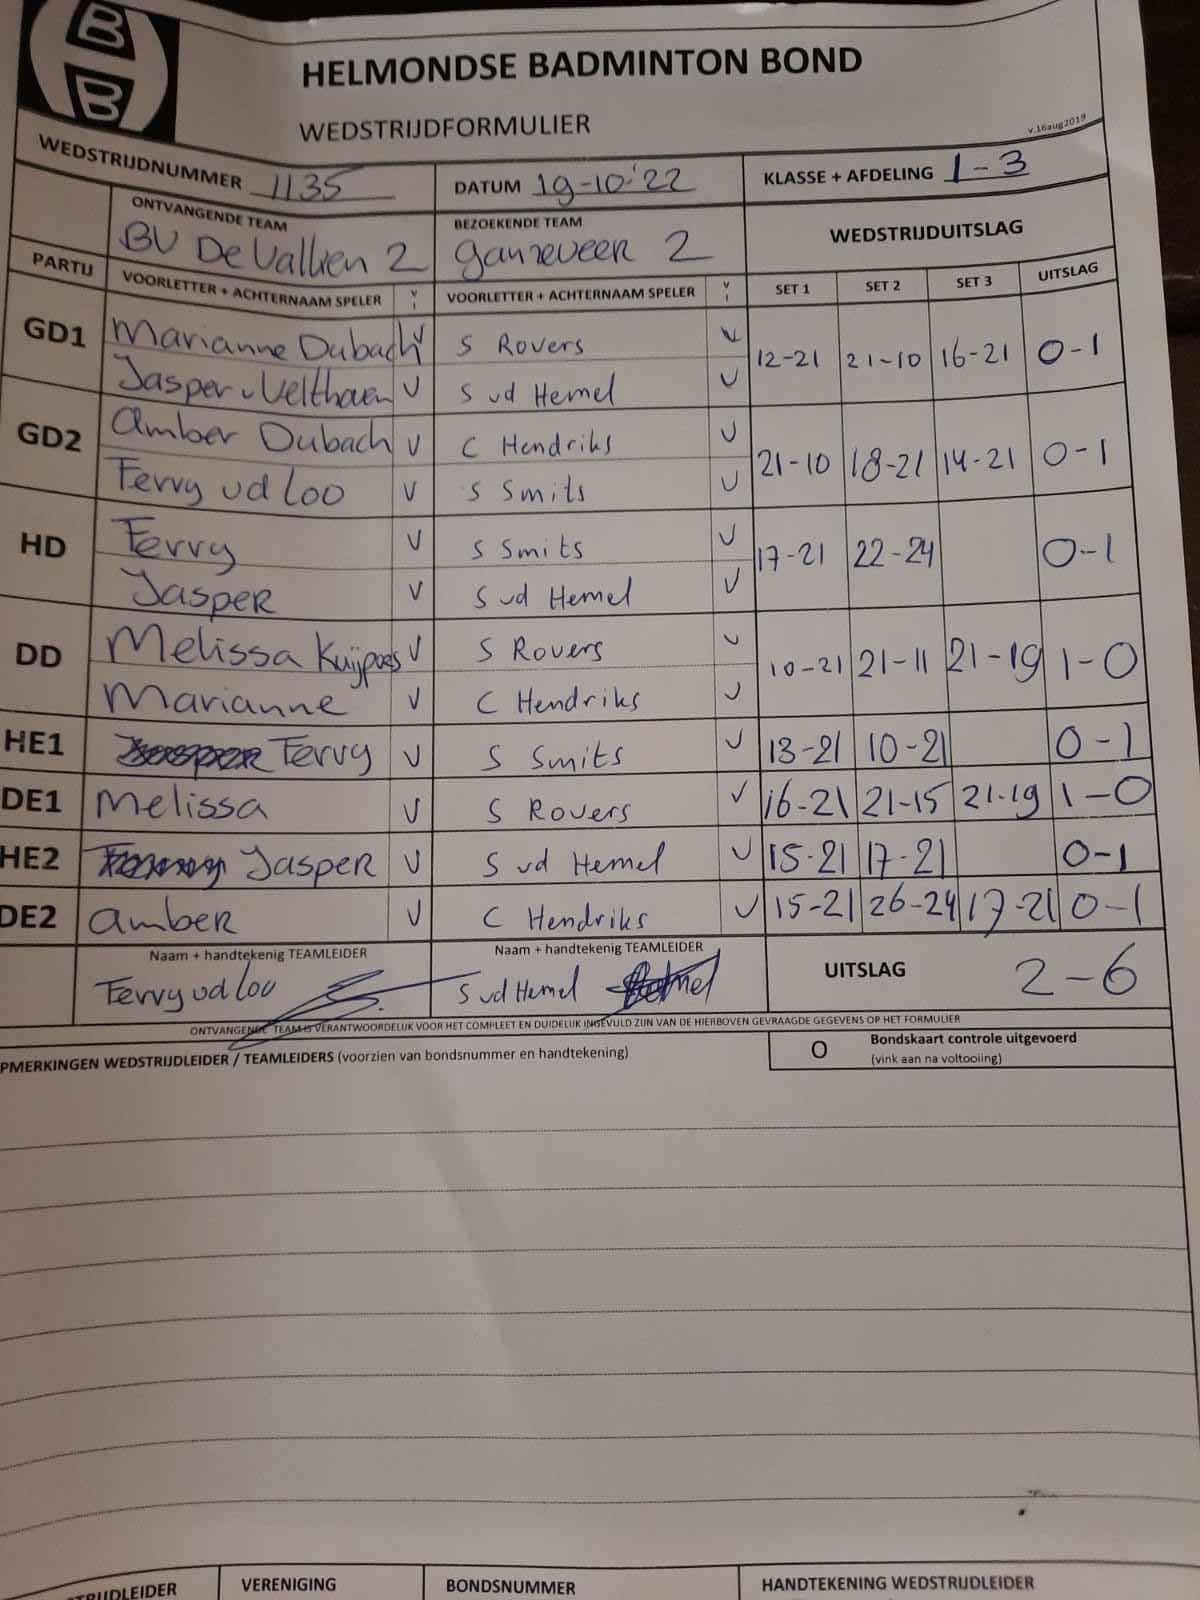 B
B
HELMONDSE BADMINTON BOND
WEDSTRIJDFORMULIER
v.16aug2019
WEDSTRIJDNUMMER 1135 DATUM 19-10-'22 KLASSE + AFDELING 1-3
ONTVANGENDE TEAM BEZOEKENDE TEAM WEDSTRIJDUITSLAG
BV De Vallien 2 ganzeveer 2
PARTIJ VOORLETTER + ACHTERNAAM SPELER V I VOORLETTER + ACHTERNAAM SPELER V I SET 1 SET 2 SET 3 UITSLAG
GD1 Marianne Dubach V S Rovers V 12-21 21-10 16-21 0-1
Jasper v Velthoven V S vd Hemel V
GD2 Amber Dubach V C Hendriks V 21-10 18-21 14-21 0-1
Ferry vd Loo V S Smits V
HD Ferry V S Smits V 17-21 22-24 0-1
Jasper V S vd Hemel V
DD Melissa Kuijpers V S Rovers V 10-21 21-11 21-19 1-0
Marianne V C Hendriks V
HE1 Ferry V S Smits V 13-21 10-21 0-1
DE1 Melissa V S Rovers V 16-21 21-15 21-19 1-0
HE2 Jasper V S vd Hemel V 15-21 17-21 0-1
DE2 Amber V C Hendriks V 15-21 26-24 17-21 0-1
Naam + handtekenig TEAMLEIDER Naam + handtekenig TEAMLEIDER UITSLAG 2-6
Ferry vd Loo S vd Hemel
ONTVANGENDE TEAM IS VERANTWOORDELIJK VOOR HET COMPLEET EN DUIDELIJK INGEVULD ZIJN VAN DE HIERBOVEN GEVRAAGDE GEGEVENS OP HET FORMULIER
PMERKINGEN WEDSTRIJDLEIDER / TEAMLEIDERS (voorzien van bondsnummer en handtekening) O Bondskaart controle uitgevoerd
(vink aan na voltooiing)
TRIJDLEIDER VERENIGING BONDSNUMMER HANDTEKENING WEDSTRIJDLEIDER